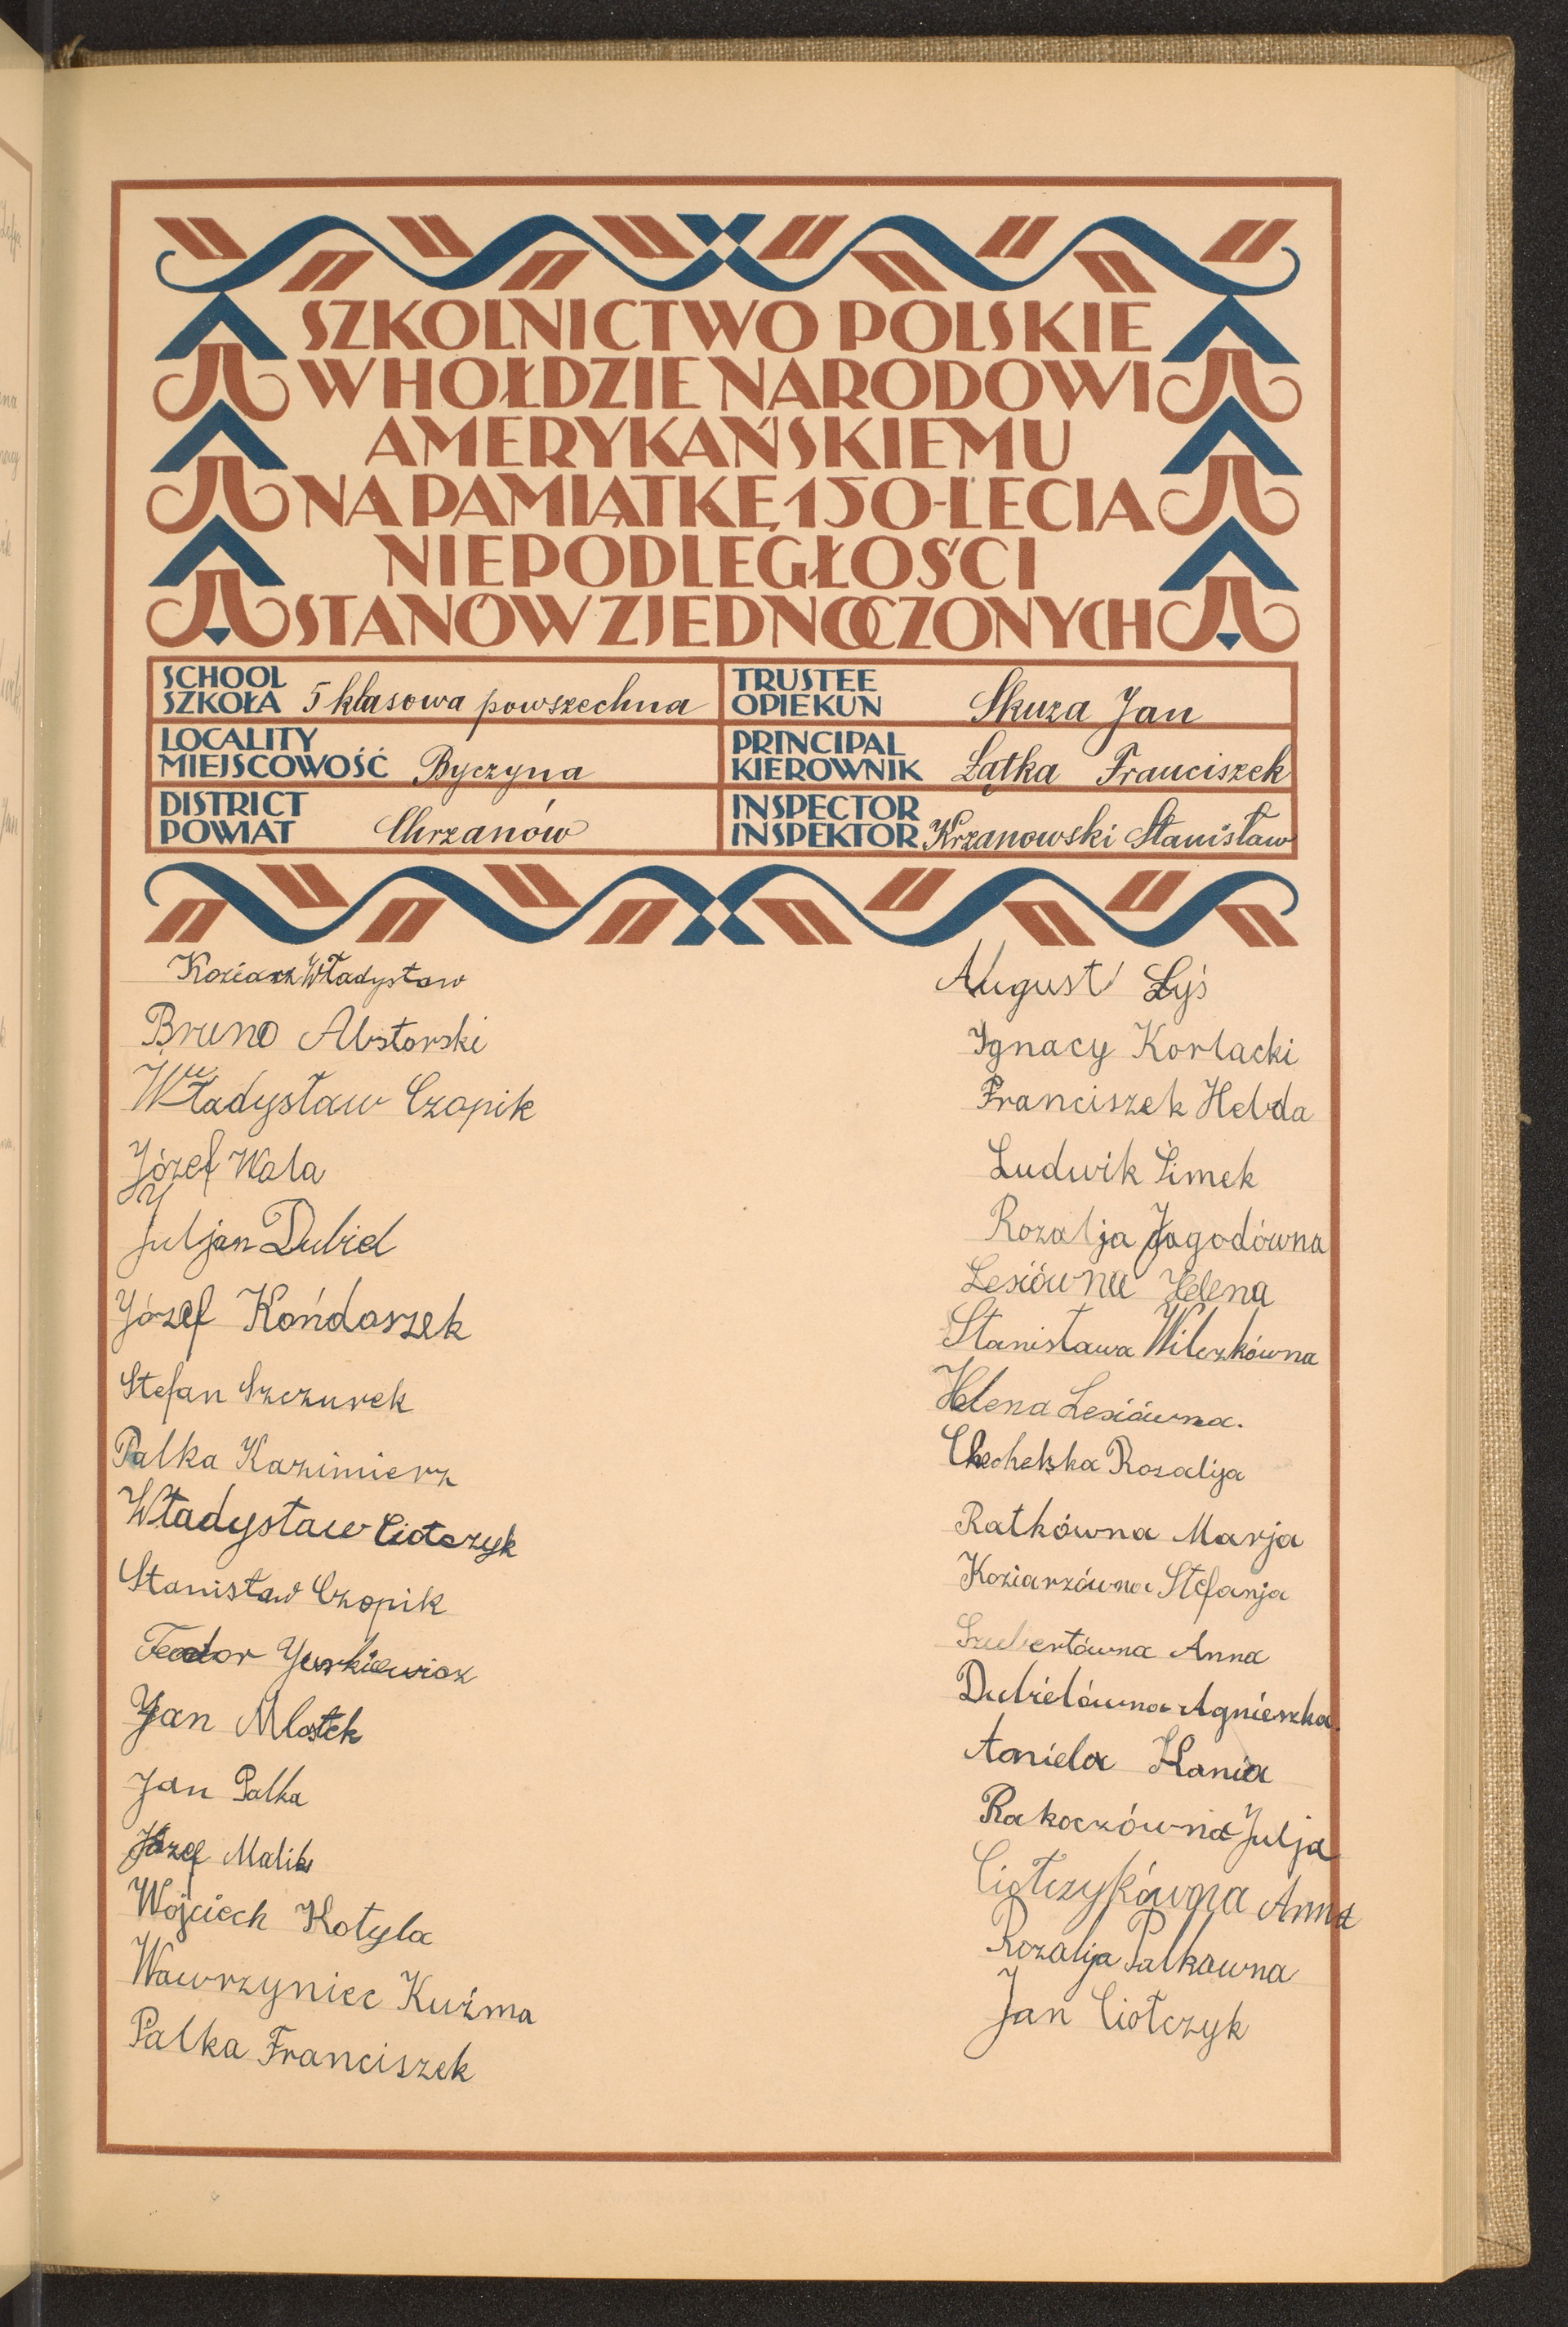 SZKOLNICTWO POLSKIE
W HOŁDZIE NARODOWI
AMERYKAŃSKIEMU
NA PAMIĄTKĘ 150-LECIA
NIEPODLEGŁOŚCI
STANÓW ZJEDNOCZONYCH
SCHOOL
SZKOŁA 5 klasowa powszechna
TRUSTEE
OPIEKUN Skuza Jan
LOCALITY
MIEJSCOWOŚĆ Byczyna
PRINCIPAL
KIEROWNIK Łątka Franciszek
DISTRICT
POWIAT Chrzanów
INSPECTOR
INSPEKTOR Krzanowski Stanisław
Koziarz Władysław
Bruno Abstorski
Władysław Czopik
Józef Wala
Juljan Dubiel
Józef Końdoszek
Stefan Szczurek
Palka Kazimierz
Władysław Ciołczyk
Stanisław Czopik
Teodor Jurkiewicz
Jan Mlostek
Jan Palka
Józef Malik
Wojciech Kotyla
Wawrzyniec Kuźma
Palka Franciszek
August Łyś
Ignacy Korlacki
Franciszek Hebda
Ludwik Simek
Rozalja Jagodówna
Lesiówna Helena
Stanisława Wilczkówna
Helena Lesiówna.
Chechelska Rozalija
Ratkówna Marja
Koziarzówna Stefanja
Szubertówna Anna
Dubielówna Agnieszka.
Aniela Kania
Rakoczówna Julja
Ciołczykówna Anna
Rozalija Palkawna
Jan Ciołczyk